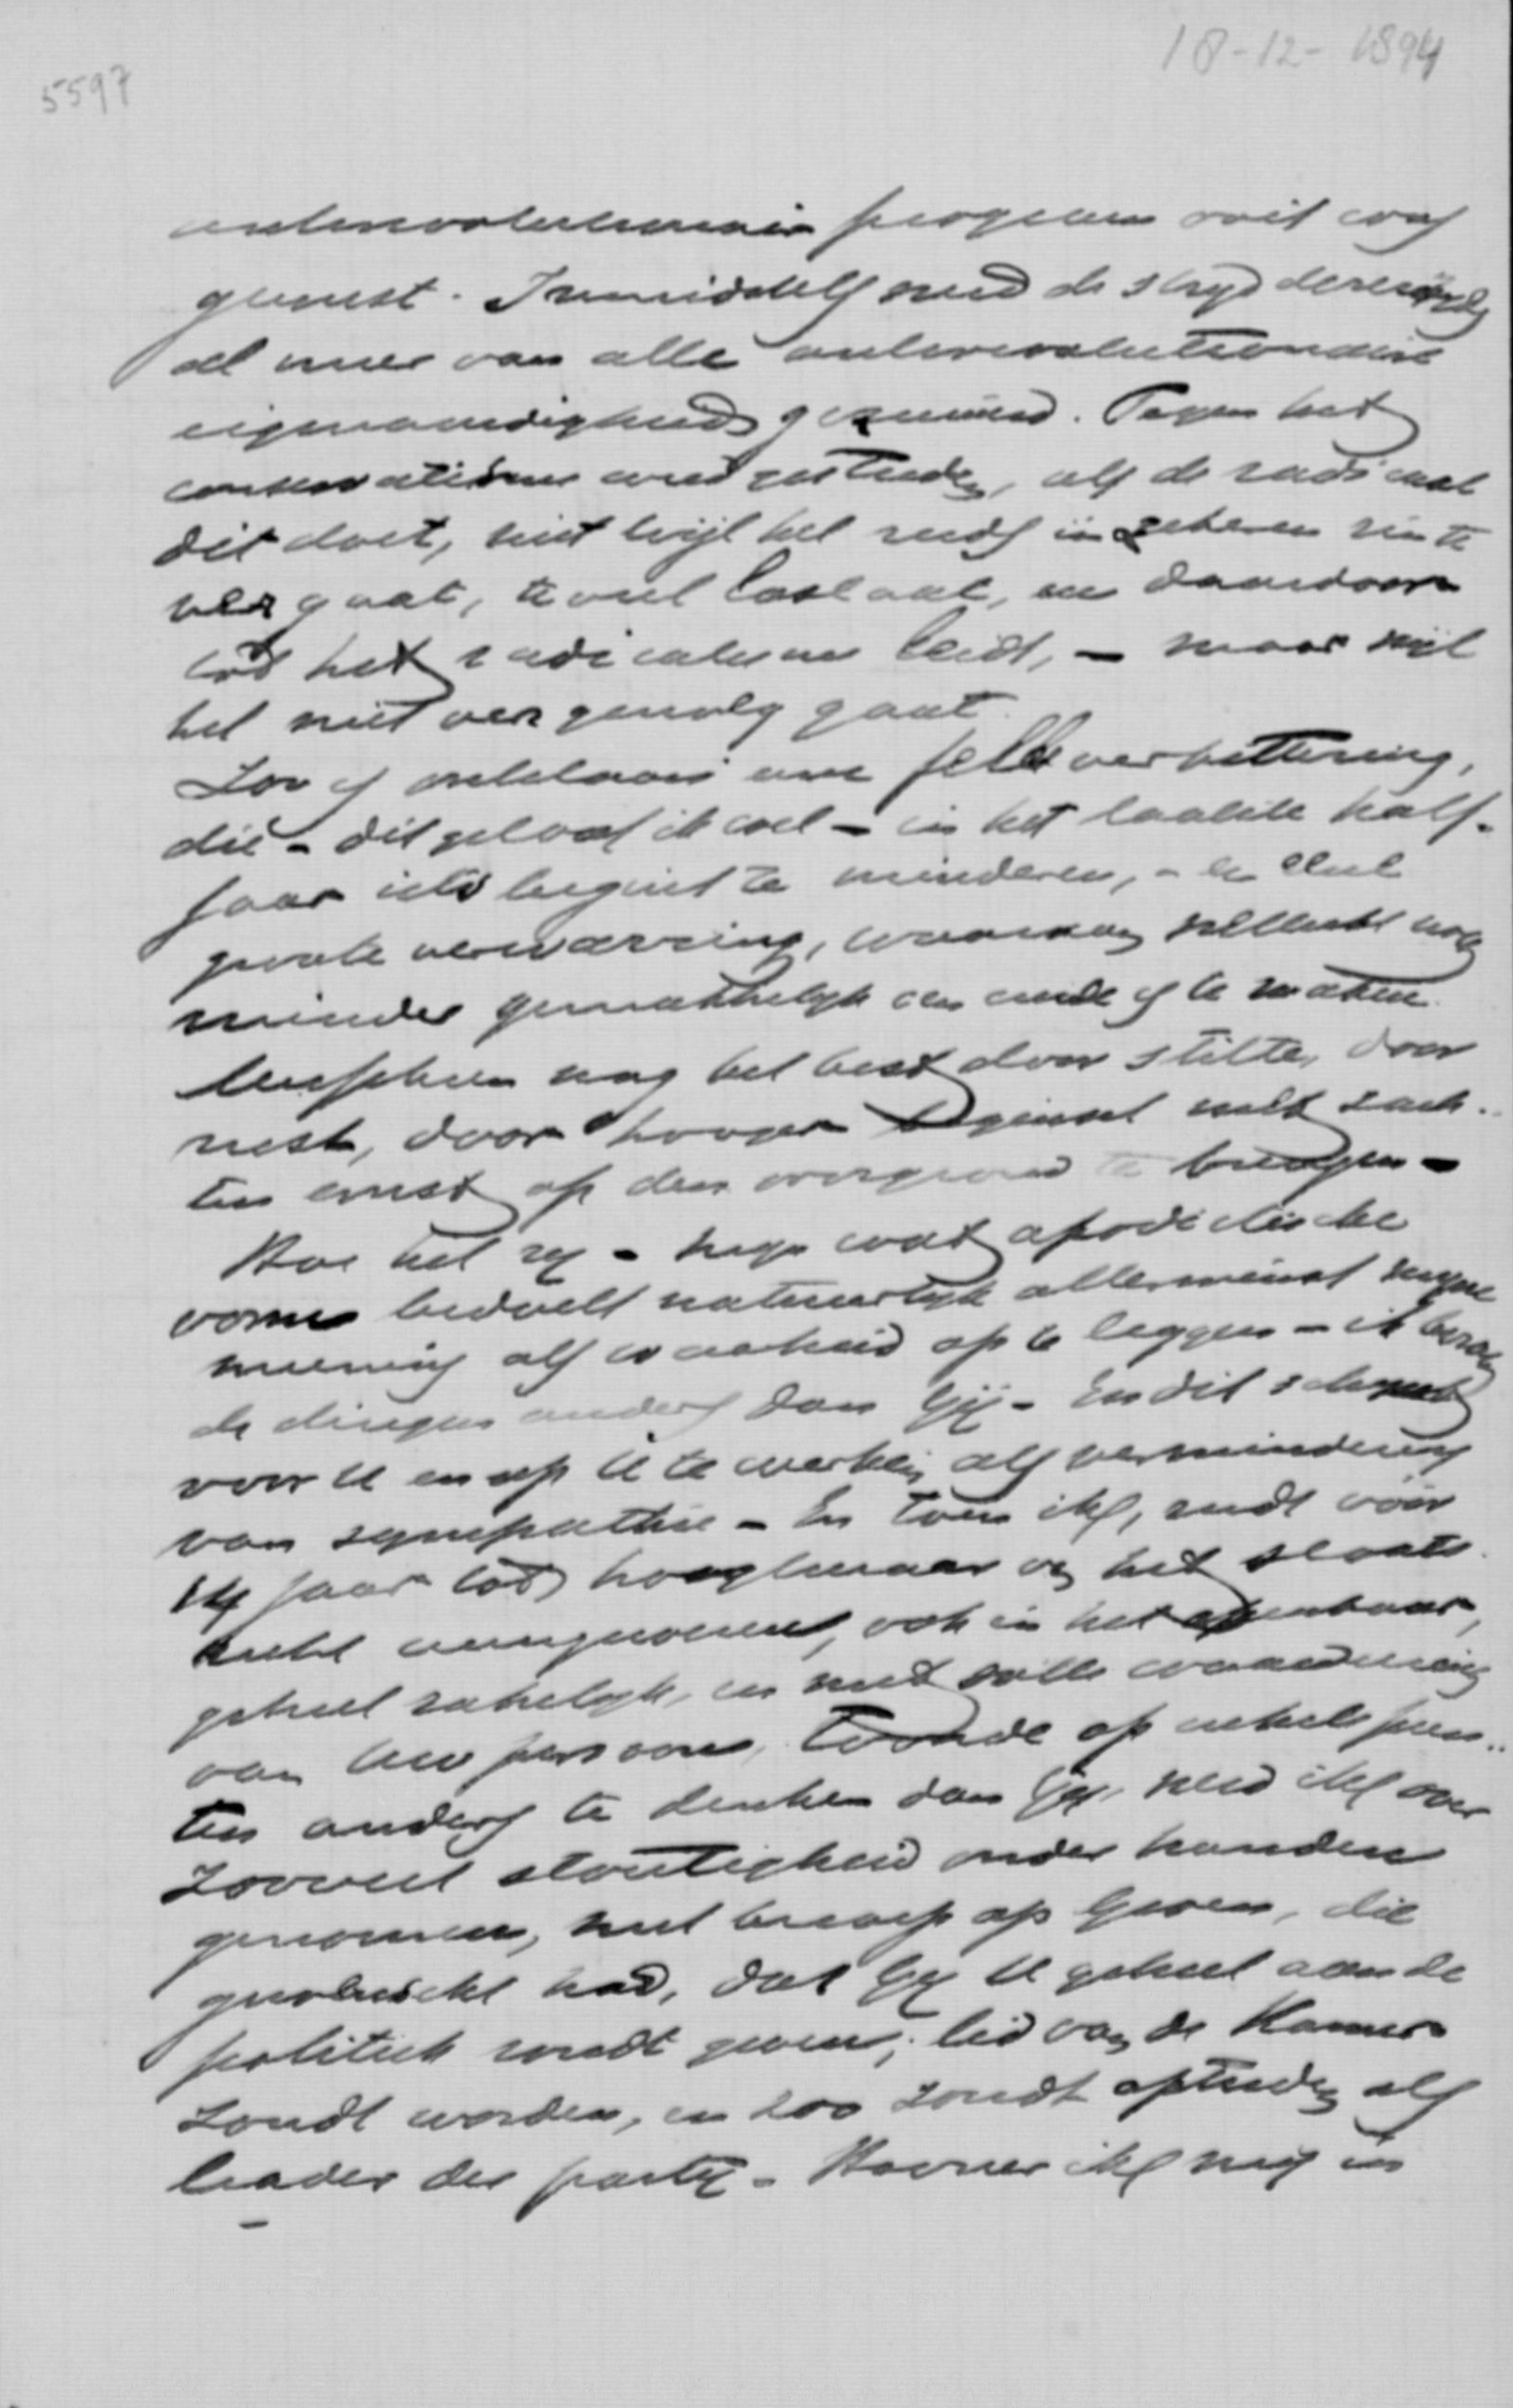 18-12-1894
5597
antirevolutionair program ooit was
geweest. Inmiddels werd de strijd derzijds
al meer van alle antirevolutionaire
eigenaardigheid gespeend. Tegen het
conservatisme werd gestreden, als de radicaal
dit doet, niet wijl het reeds in zekeren zin te
ver gaat, te veel loslaat, en daardoor
tot het radicalisme leidt, – maar wijl
het niet ver genoeg gaat.
Zoo is ontstaan eene felle verbittering,
die – dit geloof ik wel – in het laatste half-
jaar iets begint te minderen, – en eene
groote verwarring, waaraan wellicht nog
minder gemakkelijk een einde is te maken.
Misschien nog het best door stilte, door
rust, door hooger beginsel met zach-
ten ernst op den voorgrond te brengen –
Hoe het zij – mijn wat apodictische
vorm bedoelt natuurlijk allerminst mijne
meening als waarheid op te leggen – ik bezie
de dingen anders dan Gij. En dit schijnt
voor U en op U te werken als vermindering
van sympathie – En toen ik, sedt vóór
14 jaar tot hoogleeraar in het staats-
recht aangewezen, ook in het openbaar,
geheel zakelijk, en met volle waardeering
van Uw persoon, toonde op enkele pun-
ten anders te denken dan Gij, werd ik over
zooveel stoutigheid onder handen
genomen, met beroep op Groen, die
gewenscht had, dat Gij U geheel aan de
politiek zoudt geven, lid van de Kamer
zoudt worden, en zoo zoudt optreden als
leader der partij – Hoever ik mij in